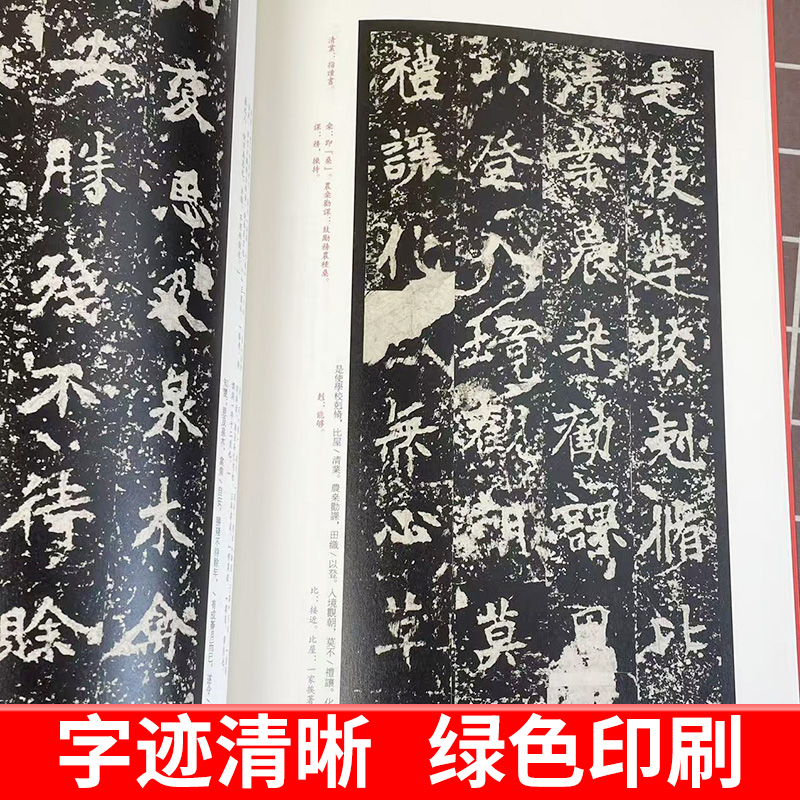 是使學校剋脩比
清業農桒勸課田
以登入境觀朝莫
禮讓化無心草
是使學校剋脩，比屋／清業。農桒勸課，田織／以登。人境觀朝，莫不／禮讓。化
剋：能够。
比：接近。比屋：一家挨著
清業：指讀書。
桒：即「桑」。農桒勸課：鼓勵務農種桑。
課：務，操持。
變恩及泉木禽
安勝殘不待賒
字迹清晰 绿色印刷